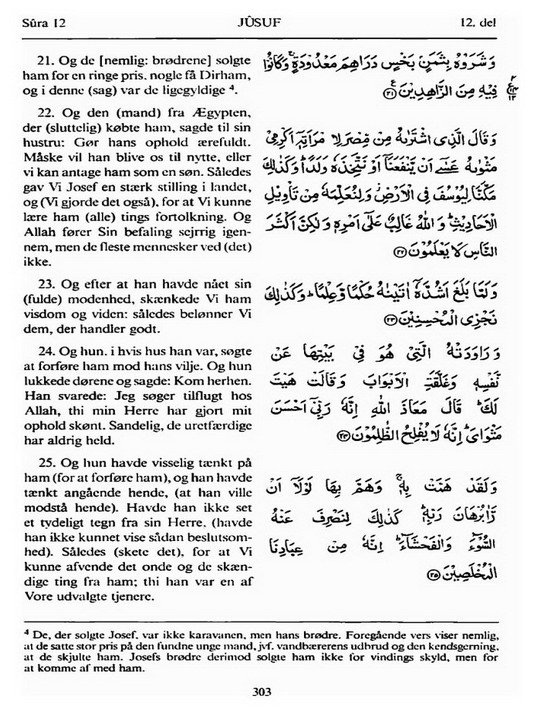 Sûra 12 JÛSUF 12. del
21. Og de [nemlig: brødrene] solgte
ham for en ringe pris, nogle få Dirham,
og i denne (sag) var de ligegyldige ⁴.
22. Og den (mand) fra Ægypten,
der (sluttelig) købte ham, sagde til sin
hustru: Gør hans ophold ærefuldt.
Måske vil han blive os til nytte, eller
vi kan antage ham som en søn. Således
gav Vi Josef en stærk stilling i landet,
og (Vi gjorde det også), for at Vi kunne
lære ham (alle) tings fortolkning. Og
Allah fører Sin befaling sejrrig igen-
nem, men de fleste mennesker ved (det)
ikke.
23. Og efter at han havde nået sin
(fulde) modenhed, skænkede Vi ham
visdom og viden: således belønner Vi
dem, der handler godt.
24. Og hun. i hvis hus han var, søgte
at forføre ham mod hans vilje. Og hun
lukkede dørene og sagde: Kom herhen.
Han svarede: Jeg søger tilflugt hos
Allah, thi min Herre har gjort mit
ophold skønt. Sandelig, de uretfærdige
har aldrig held.
25. Og hun havde visselig tænkt på
ham (for at forføre ham), og han havde
tænkt angående hende, (at han ville
modstå hende). Havde han ikke set
et tydeligt tegn fra sin Herre, (havde
han ikke kunnet vise sådan beslutsom-
hed). Således (skete det), for at Vi
kunne afvende det onde og de skæn-
dige ting fra ham; thi han var en af
Vore udvalgte tjenere.
وَشَرَوْهُ بِثَمَنٍ بَخْسٍ دَرَاهِمَ مَعْدُودَةٍ وَكَانُوْا
فِيْهِ مِنَ الزَّاهِدِيْنَ ﴿٢١﴾
وَقَالَ الَّذِى اشْتَرٰىهُ مِنْ مِّصْرَ لِامْرَاَتِهٖٓ اَكْرِمِىْ
مَثْوٰىهُ عَسٰٓى اَنْ يَّنْفَعَنَآ اَوْ نَتَّخِذَهٗ وَلَدًا وَكَذٰلِكَ
مَكَّنَّا لِيُوْسُفَ فِى الْاَرْضِ وَلِنُعَلِّمَهٗ مِنْ تَاْوِيْلِ
الْاَحَادِيْثِ وَاللّٰهُ غَالِبٌ عَلٰٓى اَمْرِهٖ وَلٰكِنَّ اَكْثَرَ
النَّاسِ لَا يَعْلَمُوْنَ ﴿٢٢﴾
وَلَمَّا بَلَغَ اَشُدَّهٗٓ اٰتَيْنٰهُ حُكْمًا وَّعِلْمًا وَكَذٰلِكَ
نَجْزِى الْمُحْسِنِيْنَ ﴿٢٣﴾
وَرَاوَدَتْهُ الَّتِىْ هُوَ فِىْ بَيْتِهَا عَنْ
نَّفْسِهٖ وَغَلَّقَتِ الْاَبْوَابَ وَقَالَتْ هَيْتَ
لَكَ قَالَ مَعَاذَ اللّٰهِ اِنَّهٗ رَبِّىْٓ اَحْسَنَ
مَثْوَاىَ اِنَّهٗ لَا يُفْلِحُ الظّٰلِمُوْنَ ﴿٢٤﴾
وَلَقَدْ هَمَّتْ بِهٖ وَهَمَّ بِهَا لَوْلَآ اَنْ
رَّاٰ بُرْهَانَ رَبِّهٖ كَذٰلِكَ لِنَصْرِفَ عَنْهُ
السُّوْٓءَ وَالْفَحْشَآءَ اِنَّهٗ مِنْ عِبَادِنَا
الْمُخْلَصِيْنَ ﴿٢٥﴾
⁴ De, der solgte Josef, var ikke karavanen, men hans brødre. Foregående vers viser nemlig,
at de satte stor pris på den fundne unge mand, jvf. vandbærerens udbrud og den kendsgerning,
at de skjulte ham. Josefs brødre derimod solgte ham ikke for vindings skyld, men for
at komme af med ham.
303